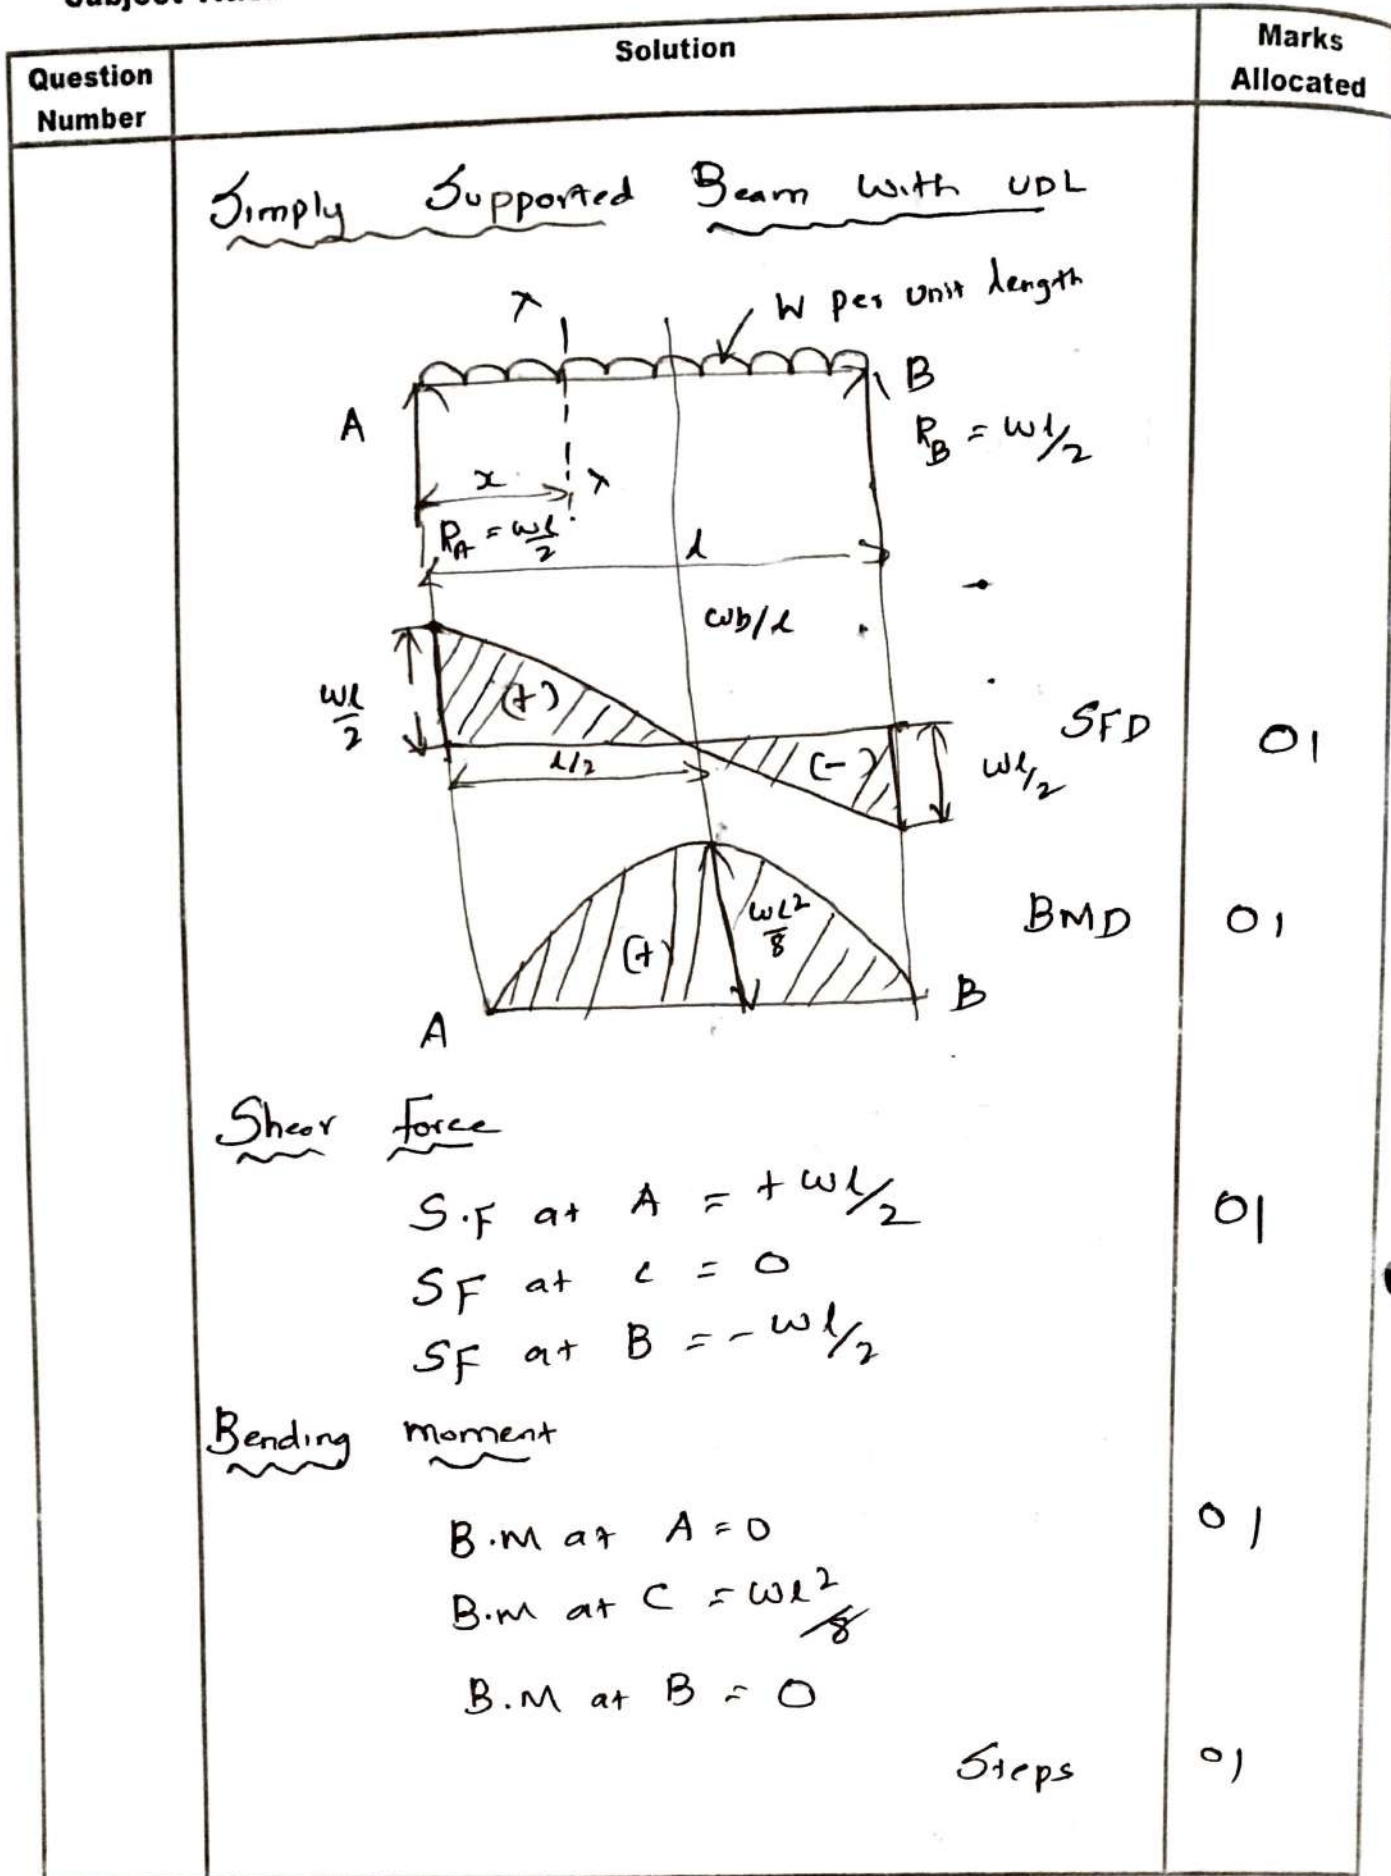 Question Number
Solution
Marks Allocated
Simply Supported Beam with UDL
W per unit length
A
B
x
R_A = wl/2
R_B = wl/2
l
wb/l
wl/2
(+)
l/2
(-)
wl/2
SFD 01
(+)
wl²/8
BMD 01
A
B
Shear Force
S.F at A = + wl/2 01
SF at c = 0
SF at B = - wl/2
Bending moment
B.M at A = 0 01
B.M at C = wl²/8
B.M at B = 0
Steps 01